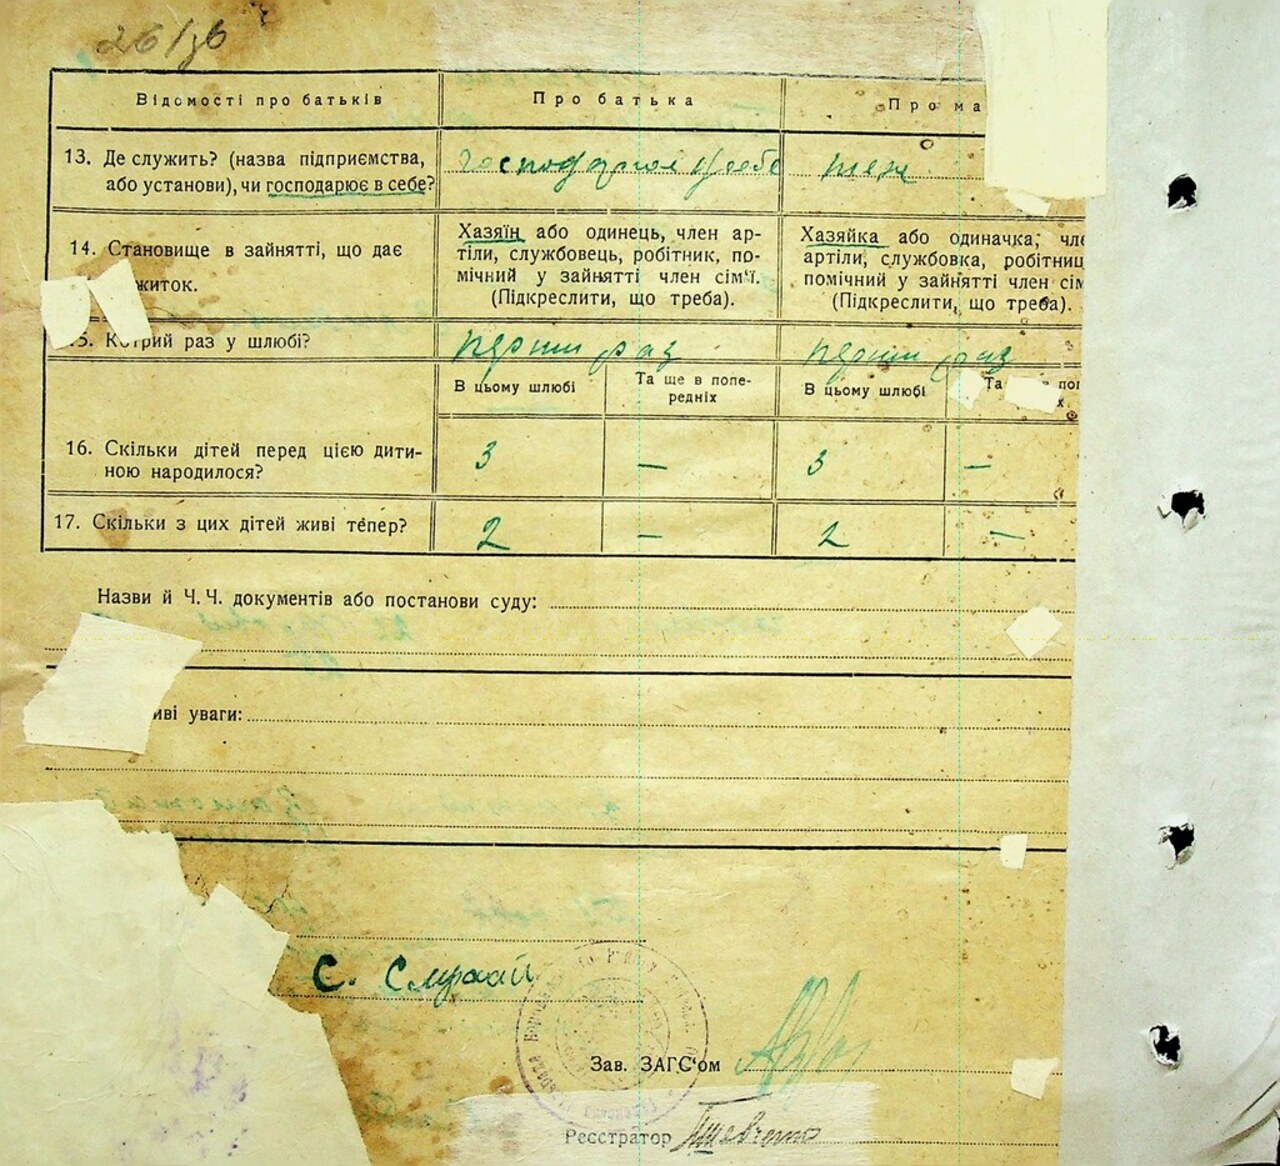 26/36
Відомості про батьків
Про батька
Про ма
13. Де служить? (назва підприємства,
або установи), чи господарює в себе?
14. Становище в зайнятті, що дає
житок.
Хазяїн або одинець, член ар-
тіли, службовець, робітник, по-
мічний у зайнятті член сім'ї.
(Підкреслити, що треба).
Хазяйка або одиначка, чле
артіли, службовка, робітниц
помічний у зайнятті член сім
(Підкреслити, що треба).
15. Котрий раз у шлюбі?
перший раз
перший раз
В цьому шлюбі
Та ще в попе-
редніх
В цьому шлюбі
Та
16. Скільки дітей перед цією дити-
ною народилося?
3
—
3
—
17. Скільки з цих дітей живі тепер?
2
—
2
—
Назви й Ч. Ч. документів або постанови суду:
иві уваги:
С.
Зав. ЗАГС'ом
Реєстратор Шевченко